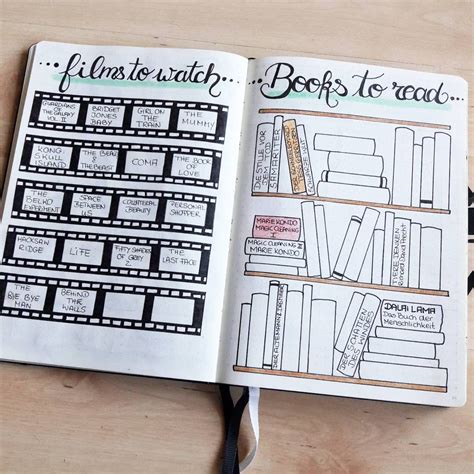 ...films to watch...
GUARDIANS
OF THE
GALAXY
VOL. II
BRIDGET
JONES
BABY
GIRL ON
THE
TRAIN
THE
MUMMY
KONG-
SKULL
ISLAND
THE BEAU
&
THE BEAST
COMA
THE BOOK
OF
LOVE
THE
BELKO
EXPERIMENT
SPACE
BETWEEN
US
COLLATERAL
BEAUTY
PERSONAL
SHOPPER
HACKSAW
RIDGE
LiFE
FIFTY SHADES
OF GREY
THE
LAST FACE
THE
BYE BYE
MAN
BEHIND
THE
WALLS
...Books to read...
DIE STILLE VOR
DEM TOD
SAMARITER
MARIE KONDO
MAGIC CLEANING
I
MAGIC CLEANING II
MARIE KONDO
TIERE DENKEN
Richard David Precht
DER SCHATTEN
DES WINDES
DALAI LAMA
Das Buch der
Menschlichkeit